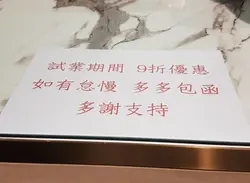 試業期間 9折優惠
如有怠慢 多多包函
多謝支持